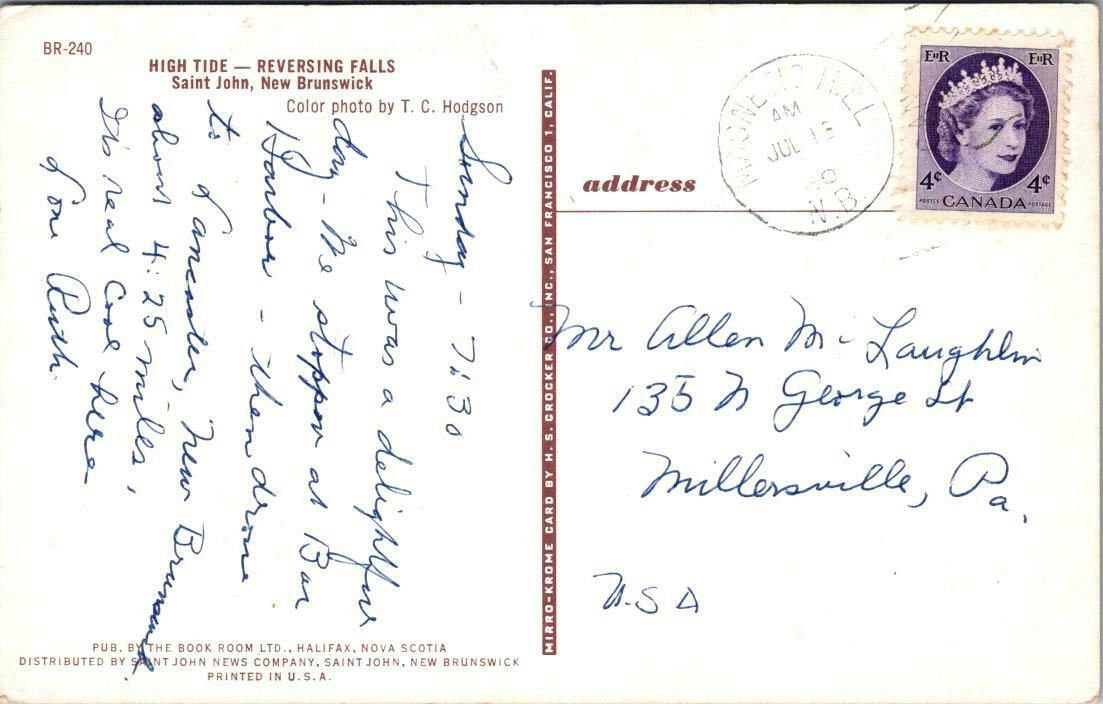 BR-240
HIGH TIDE — REVERSING FALLS
Saint John, New Brunswick
Color photo by T. C. Hodgson
Sunday - 7:30
This was a delightful
day - We stopped at Bar
Harbor - then drove
to Lancaster, New Brunswick
about 425 miles.
It's real cool here -
Love Ruth.
PUB. BY THE BOOK ROOM LTD., HALIFAX, NOVA SCOTIA
DISTRIBUTED BY SAINT JOHN NEWS COMPANY, SAINT JOHN, NEW BRUNSWICK
PRINTED IN U.S.A.
MIRRO-KROME CARD BY H. S. CROCKER CO., INC., SAN FRANCISCO 1, CALIF.
address
MAGNETIC HILL
AM
JUL 13
60
N.B.
EIIR EIIR
4¢ 4¢
POSTES CANADA POSTAGE
Mr Allen McLaughlin
135 N George St
Millersville, Pa.
USA